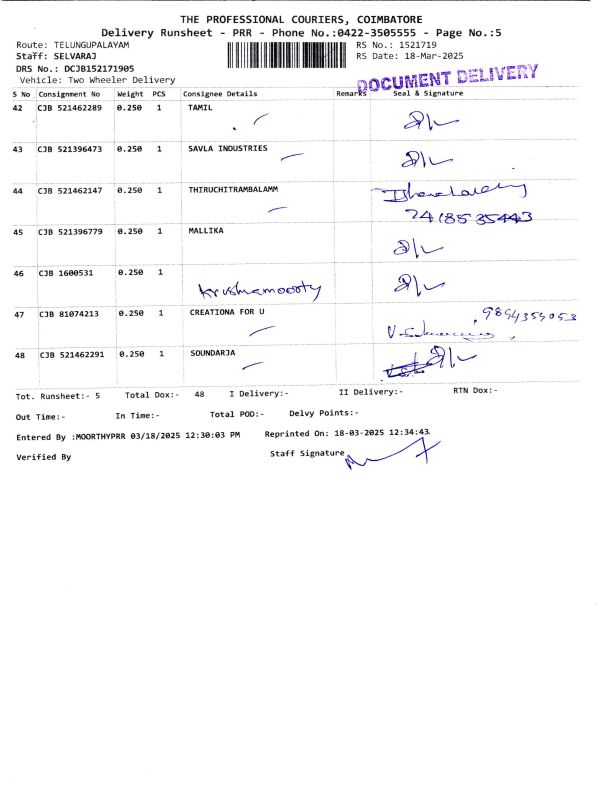 THE PROFESSIONAL COURIERS, COIMBATORE
Delivery Runsheet - PRR - Phone No.:0422-3505555 - Page No.:5
Route: TELUNGUPALAYAM RS No.: 1521719
Staff: SELVARAJ RS Date: 18-Mar-2025
DRS No.: DCJB152171905
Vehicle: Two Wheeler Delivery
DOCUMENT DELIVERY
S No Consignment No Weight PCS Consignee Details Remarks Seal & Signature
42 CJB 521462289 0.250 1 TAMIL
43 CJB 521396473 0.250 1 SAVLA INDUSTRIES
44 CJB 521462147 0.250 1 THIRUCHITRAMBALAMM
7418535443
45 CJB 521396779 0.250 1 MALLIKA
46 CJB 1600531 0.250 1
Krushnamoorty
47 CJB 81074213 0.250 1 CREATIONA FOR U
9894359053
48 CJB 521462291 0.250 1 SOUNDARJA
Tot. Runsheet:- 5 Total Dox:- 48 I Delivery:- II Delivery:- RTN Dox:-
Out Time:- In Time:- Total POD:- Delvy Points:-
Entered By :MOORTHYPRR 03/18/2025 12:30:03 PM Reprinted On: 18-03-2025 12:34:43
Verified By Staff Signature